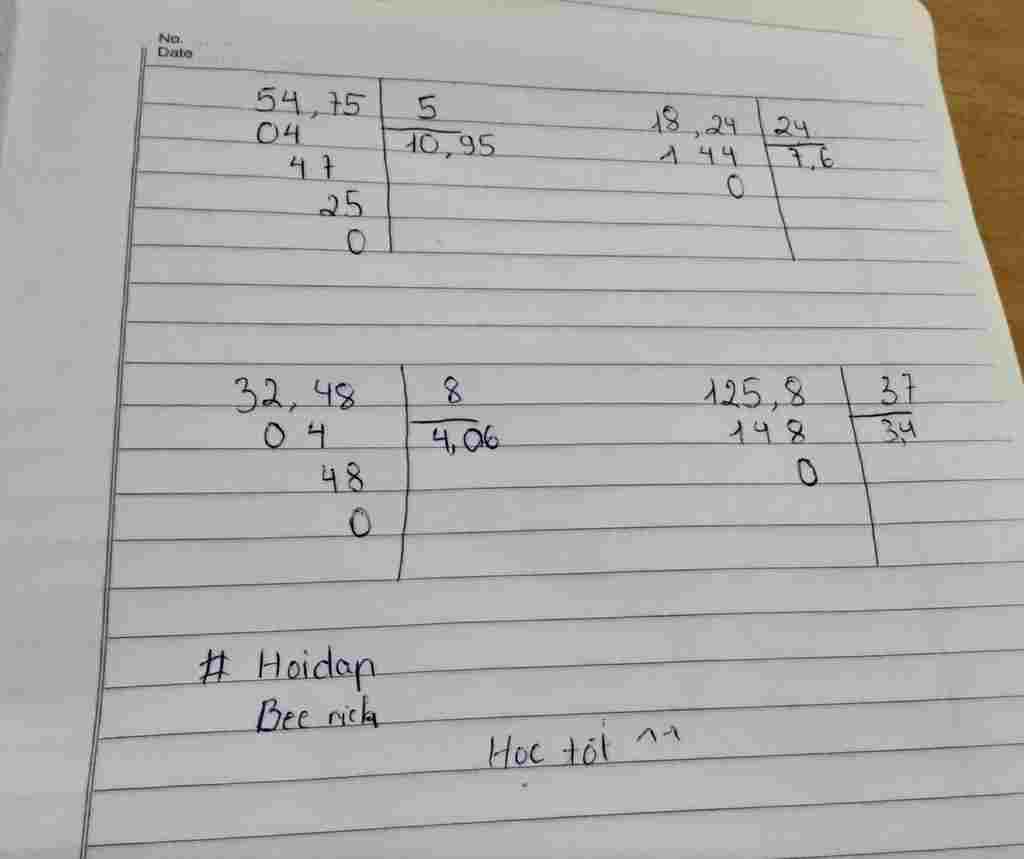 No.
Date
54,75 5
04 10,95
47
25
0
18,24 24
1 44 7,6
0
32,48 8
0 4 4,06
48
0
125,8 37
14 8 3,4
0
# Hoidap
Bee rich
Học tốt ^^